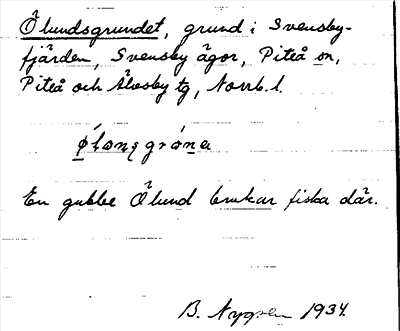 Ölundsgrundet, grund i Svensby-
fjärden, Svensby ägor, Piteå sn,
Piteå och Älvsby tg, Norrb. l.
En gubbe Ölund brukar fiska där.
B. Nygren 1934.